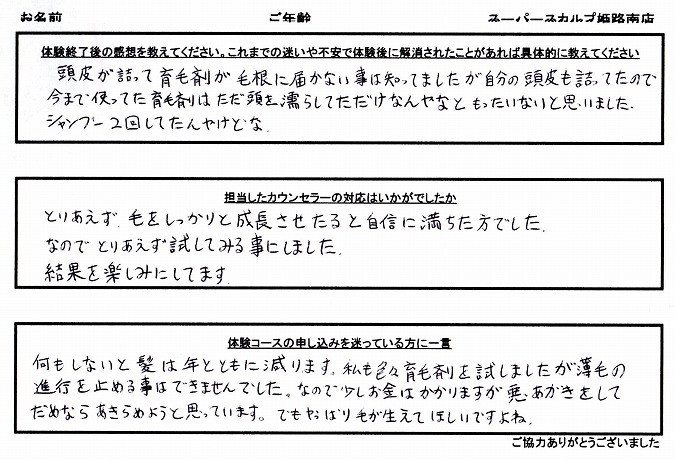 お名前 ご年齢 スーパースカルプ姫路南店
体験終了後の感想を教えてください。これまでの迷いや不安で体験後に解消されたことがあれば具体的に教えてください
頭皮が詰って育毛剤が毛根に届かない事は知ってましたが自分の頭皮も詰ってたので
今まで使ってた育毛剤はただ頭を濡らしてただけなんやなと もったいないと思いました.
シャンプー2回してたんやけどな.
担当したカウンセラーの対応はいかがでしたか
とりあえず.毛をしっかりと成長させたると自信に満ちた方でした.
なのでとりあえず試してみる事にしました.
結果を楽しみにしてます.
体験コースの申し込みを迷っている方に一言
何もしないと髪は年とともに減ります。私も色々育毛剤を試しましたが薄毛の
進行を止める事はできませんでした。なので少しお金はかかりますが悪あがきをして
だめならあきらめようと思っています。でもやっぱり毛が生えてほしいですよね.
ご協力ありがとうございました